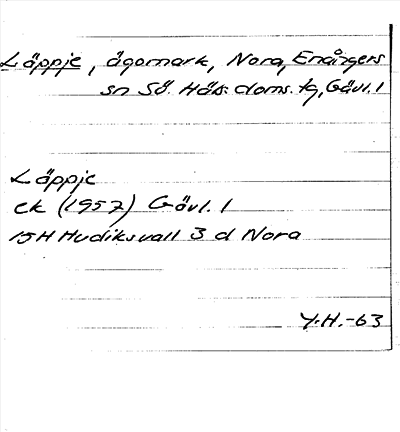 Läppje, ägomark, Nora, Enångers
sn Sö. Häls. doms. tg, Gävl. l
Läppje
ek (1957) Gävl. l
15H Hudiksvall 3 d Nora
Y.H.-63